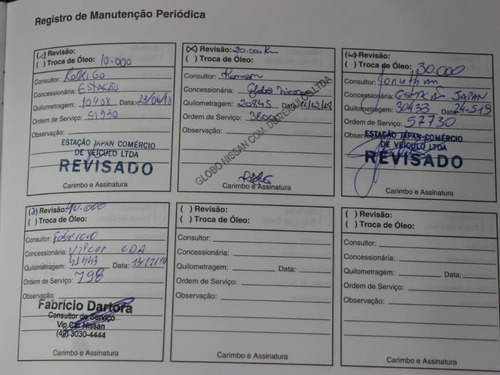 Registro de Manutenção Periódica
(x) Revisão:
( ) Troca de Óleo: 10.000
Consultor: Rodrigo
Concessionária: Estação
Quilometragem: 10408 Data: 23/04/18
Ordem de Serviço: 51930
Observação:
ESTAÇÃO JAPAN COMÉRCIO
DE VEÍCULO LTDA
REVISADO
Carimbo e Assinatura
(x) Revisão: 20.000 K
( ) Troca de Óleo:
Consultor:
Concessionária: Globo
Quilometragem: 20845 Data:
Ordem de Serviço:
Observação:
GLOBO NISSAN COM. DE VEÍCULOS LTDA
Carimbo e Assinatura
( ) Revisão:
( ) Troca de Óleo: 30.000
Consultor: Jonathan
Concessionária: Estação JAPAN
Quilometragem: 30433 Data: 24-5-19
Ordem de Serviço: 57730
Observação:
ESTAÇÃO JAPAN COMÉRCIO
DE VEÍCULO LTDA
REVISADO
Carimbo e Assinatura
( ) Revisão: 40.000
( ) Troca de Óleo:
Consultor: Fabricio
Concessionária: Vipcar
Quilometragem: Data:
Ordem de Serviço: 798
Observação:
Fabricio Dartora
Consultor de Serviço
Vip Car Nissan
(49) 3030-4444
Carimbo e Assinatura
( ) Revisão:
( ) Troca de Óleo:
Consultor:
Concessionária:
Quilometragem: Data:
Ordem de Serviço:
Observação:
Carimbo e Assinatura
( ) Revisão:
( ) Troca de Óleo:
Consultor:
Concessionária:
Quilometragem: Data:
Ordem de Serviço:
Observação:
Carimbo e Assinatura